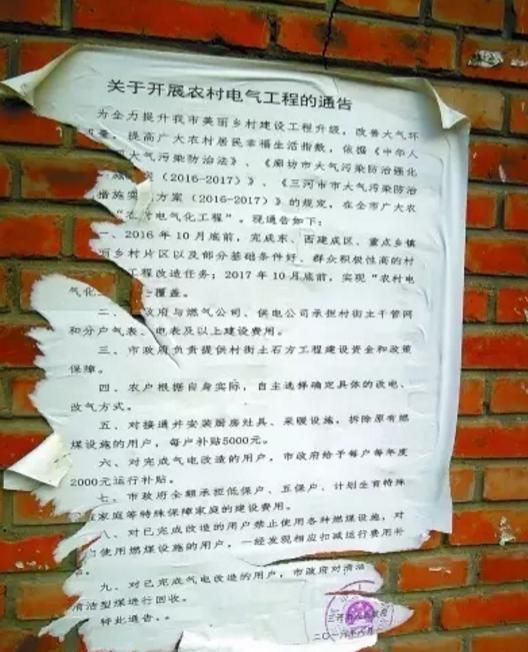 关于开展农村电气工程的通告
为全力提升我市美丽乡村建设工程升级，改善大气环
，提高广大农村居民幸福生活指数，依据《中华人
大气污染防治法》、《廊坊市大气污染防治强化
（2016-2017）》、《三河市市大气污染防治
措施实 方案（2016-2017）》的规定，在全市广大农
“农 电气化工程”。现通告如下：
一、2016年10月底前，完成东、西建成区、重点乡镇
乡村片区以及部分基础条件好、群众积极性高的村
工程改造任务；2017年10月底前，实现“农村电
气化 覆盖。
二、 政府与燃气公司、供电公司承担村街主干管网
和分户气表、电表及以上建设费用。
三、市政府负责提供村街土石方工程建设资金和政策
保障。
四、农户根据自身实际，自主选择确定具体的改电、
改气方式。
五、对接通并安装厨房灶具、采暖设施，拆除原有燃
煤设施的用户，每户补贴5000元。
六、对完成气电改造的用户，市政府给予每户每年度
2000元运行补贴。
七、市政府全额承担低保户、五保户、计划生育特殊
家庭等特殊保障家庭的建设费用。
八、对已完成改造的用户禁止使用各种燃煤设施，对
使用燃煤设施的用户，一经发现相应扣减运行费用补
九、对已完成气电改造的用户，市政府对清洁
清洁型煤进行回收。
特此通告。